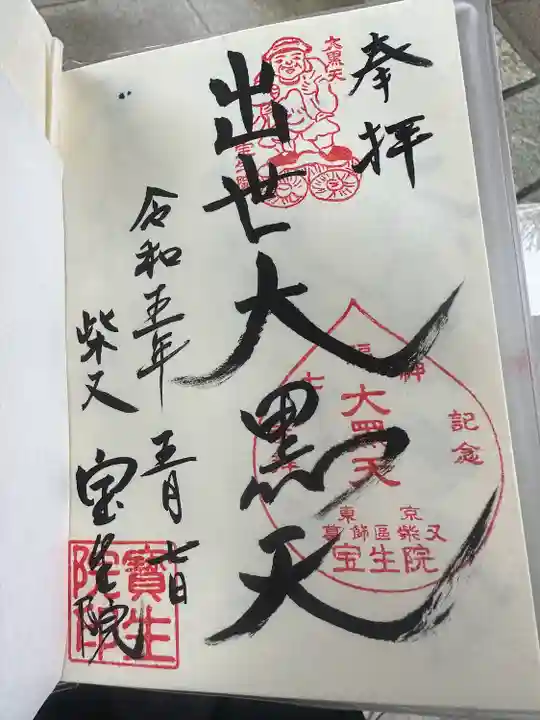 奉拝
大黒天
出世大黒天
七福神
大黒天
記念
東京
葛飾區柴又
宝生院
令和五年 五月 七日
柴又 宝生院
寳生
院印